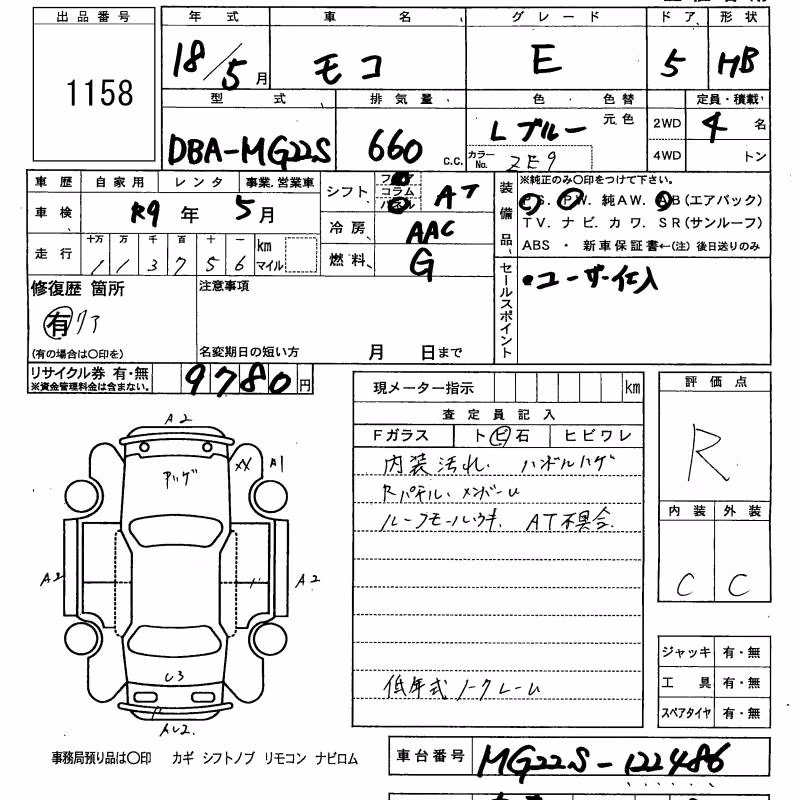 出品番号 年式 車名 グレード ドア 形状
1158 18/5月 モコ E 5 HB
型式 排気量 色 色替 定員・積載
DBA-MG22S 660 c.c. Lブルー 元色 2WD 4名
カラーNo. ZE9 4WD トン
車歴 自家用 レンタ 事業.営業車 シフト フロア コラム パネル AT 装備品 ※純正のみ〇印をつけて下さい。
車検 R9年 5月 P.S. P.W. 純AW. AB(エアバック)
冷房 AAC T.V. ナビ. カワ. SR(サンルーフ)
走行 十万 万 千 百 十 一 km マイル
1 1 3 7 5 6 燃料 G ABS ・ 新車保証書←(注) 後日送りのみ
修復歴 箇所 注意事項 セールスポイント ・ユーザー仕入
有 リア
(有の場合は〇印を) 名変期日の短い方 月 日まで
リサイクル券 有・無
※資金管理料金は含まない。 9780円
現メーター指示 km 評価点
査定員記入
Fガラス ト ビ 石 ヒビワレ R
内装汚れ. ハンドルハゲ
Rパネル. メンバーU
ルーフモールウキ. AT不具合.
内装 外装
C C
低年式ノークレーム
A2
アッゲ XX A1
A2 A2
U3
AU2.
ジャッキ 有・無
工具 有・無
スペアタイヤ 有・無
事務局預り品は〇印 カギ シフトノブ リモコン ナビロム
車台番号 MG22S-122486